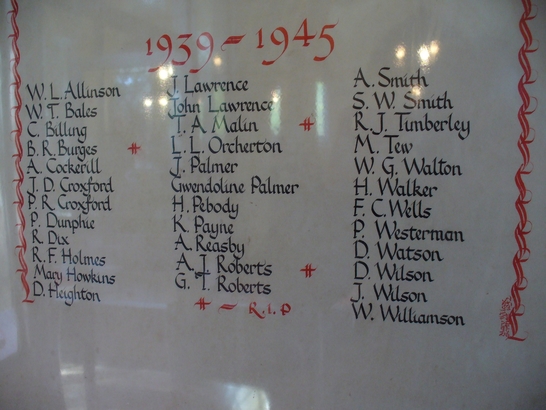 1939 - 1945
W. L. Allinson
W. T. Bales
C. Billing
B. R. Burges #
A. Cockerill
J. D. Croxford
P. R. Croxford
P. Dunphie
R. Dix
R. F. Holmes
Mary Howkins
D. Heighton
J. Lawrence
John Lawrence
T. A. Malin #
L. L. Orcherton
J. Palmer
Gwendoline Palmer
H. Pebody
K. Payne
A. Reasby
A. J. Roberts #
G. T. Roberts
# - R.I.P
A. Smith
S. W. Smith
R. J. Timberley
M. Tew
W. G. Walton
H. Walker
F. C. Wells
P. Westerman
D. Watson
D. Wilson
J. Wilson
W. Williamson